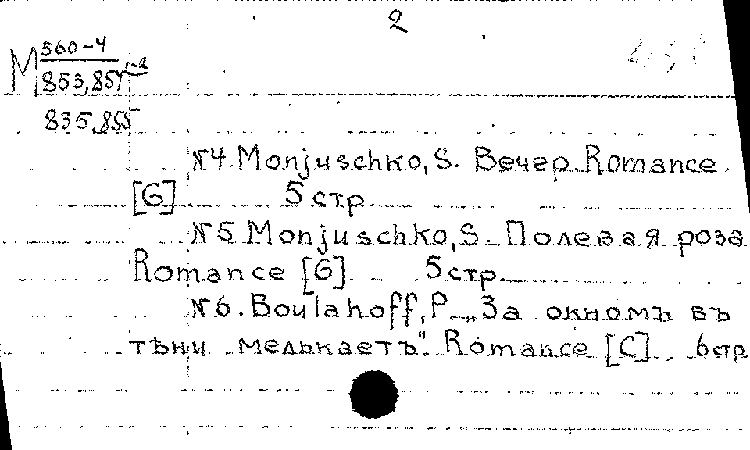 2
M 560-4
853,854-2
835,855
№4 Monjuschko, S. Вечер Romance
[G] 5 стр
№5 Monjuschko, S. Полевая роза
Romance [G] 5 стр.
№6. Boulahoff, P. „За окномъ въ
тѣни мелькаетъ". Romance [C] 6 стр